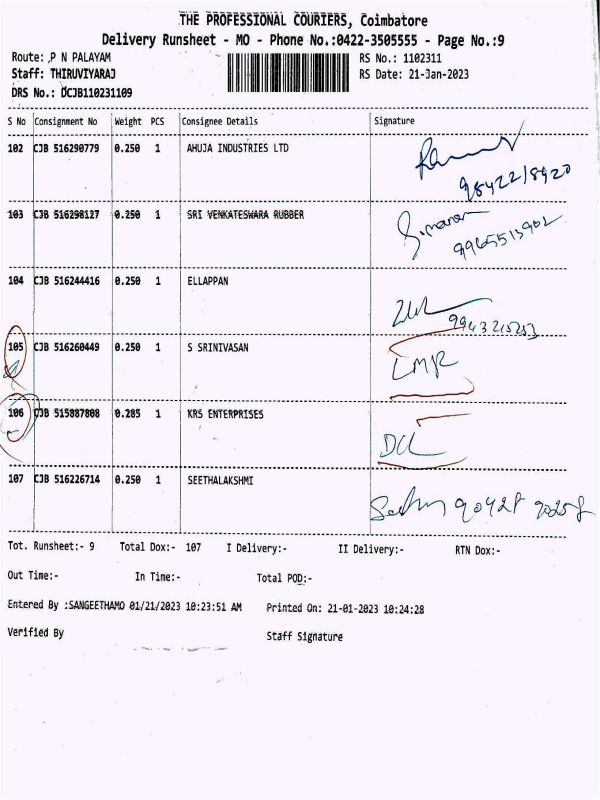 THE PROFESSIONAL COURIERS, Coimbatore
Delivery Runsheet - MO - Phone No.:0422-3505555 - Page No.:9
Route: ,P N PALAYAM RS No.: 1102311
Staff: THIRUVIYARAJ RS Date: 21-Jan-2023
DRS No.: DCJB110231109
S No Consignment No Weight PCS Consignee Details Signature
102 CJB 516290779 0.250 1 AHUJA INDUSTRIES LTD
9842218920
103 CJB 516298127 0.250 1 SRI VENKATESWARA RUBBER
S.manan
9965513902
104 CJB 516244416 0.250 1 ELLAPPAN
9943215253
105 CJB 516260449 0.250 1 S SRINIVASAN
LMR
106 CJB 515887808 0.285 1 KRS ENTERPRISES
DCL
107 CJB 516226714 0.250 1 SEETHALAKSHMI
90428 90258
Tot. Runsheet:- 9 Total Dox:- 107 I Delivery:- II Delivery:- RTN Dox:-
Out Time:- In Time:- Total POD:-
Entered By :SANGEETHAMO 01/21/2023 10:23:51 AM Printed On: 21-01-2023 10:24:28
Verified By Staff Signature